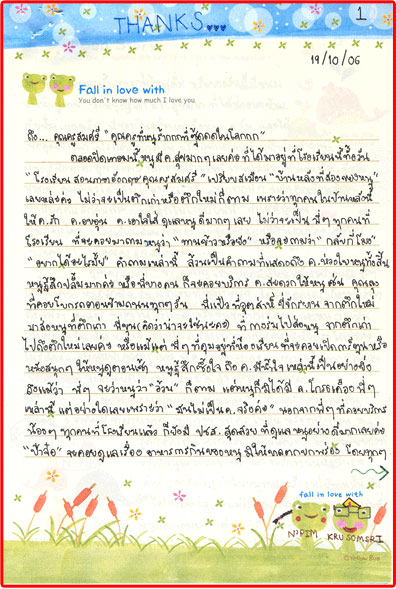 THANKS...
1
19/10/06
Fall in love with
You don't know how much I love you
ถึง... คุณครูสมศรี "คุณครูที่หนูรักมากที่สุดในโลกกก"
ตลอดปิดเทอมนี้ หนูมี ค.สุขมากๆ เลยค่ะ ที่ได้มาอยู่ที่โรงเรียนนี้ทั้งวัน
"โรงเรียนสอนภาษาอังกฤษคุณครูสมศรี" เปรียบเสมือน "บ้านหลังที่สองของหนู"
เลยหล่ะค่ะ ไม่ว่าจะเป็นตึกเก่าหรือตึกใหม่ก็ตาม เพราะว่าทุกคนในบ้านหลังนี้
ให้ ค.รัก ค.อบอุ่น ค.เอาใจใส่ ดูแลหนูดีมากๆ เลย ไม่ว่าจะเป็น พี่ๆ ทุกคนที่
โรงเรียน ที่จะคอยมาถามหนูว่า "ทานข้าวหรือยัง" หรือจะถามว่า "กลับกี่โมง"
"อยากได้อะไรมั้ย" คำถามเหล่านี้ ล้วนเป็นคำถามที่แสดงถึง ค.ห่วงใยหนูทั้งสิ้น
หนูรู้สึกปลื้มมากค่ะ หรือพี่บางคน ก็จะคอยบริการ ค.สะดวกให้หนู เช่น คุณลุง
ที่คอยโบกรถตอนข้ามถนนทุกๆวัน
มาส่งหนูที่ตึกเก่า
ไปถึงตึกใหม่เลยค่ะ หรือแม้แต่ พี่ๆ ที่
หนังสนุกๆ ให้หนูดูตอนเช้า หนูรู้สึกซึ้งใจ ถึง ค.มีน้ำใจ เหล่านี้เป็นอย่างยิ่ง
ถึงแม้ว่า พี่ๆ จะว่าหนูว่า "อ้วน" ก็ตาม แต่หนูก็มิได้มี ค.โกรธเคือง พี่ๆ
เหล่านี้ แต่อย่างใดเลยเพราะว่า "มันไม่เป็น ค.จริงค่ะ" นอกจากพี่ๆ ที่คอยบริการ
น้องๆ ทุกคนที่โรงเรียนแล้ว ก็ยังมี ปชส. สุดสวย ที่ดูแลหนูอย่างดีมากเลยค่ะ
จะคอยดูแลเรื่อง อาหารการกินของหนู มิให้ขาดตกบกพร่อง โดยทุกๆ
fall in love with
N'PIM KRU SOMSRI